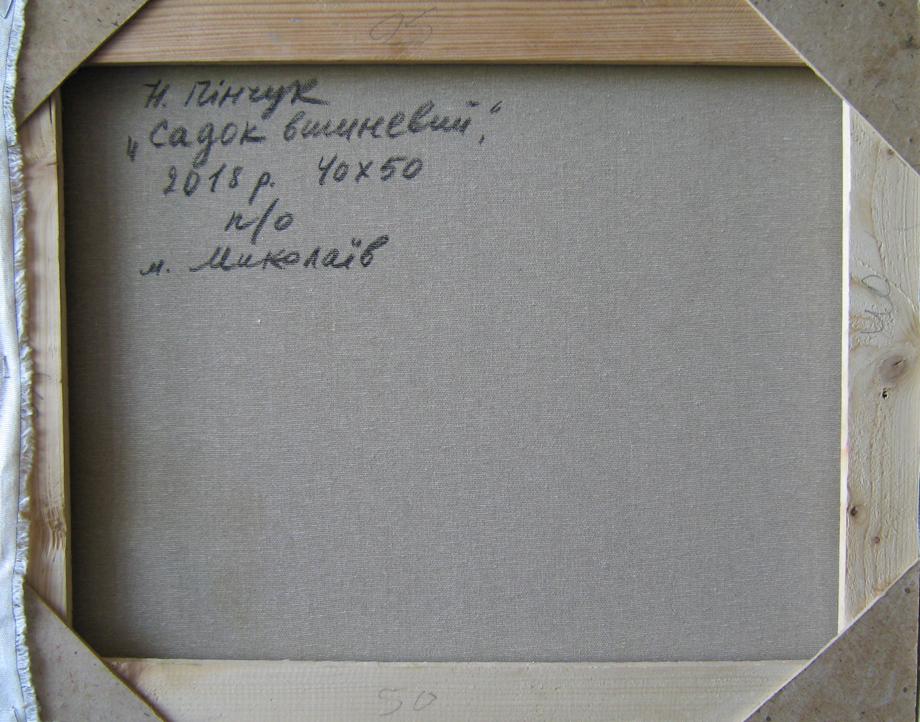 Н. Пінчук
„Садок вишневий,"
2018 р. 40х50
п/о
м. Миколаїв
50